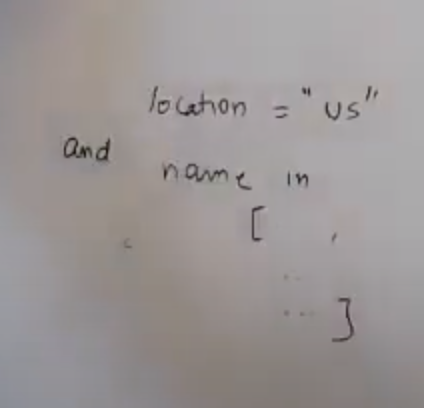 location = "us"
and
name in
[ ,
..
... ]